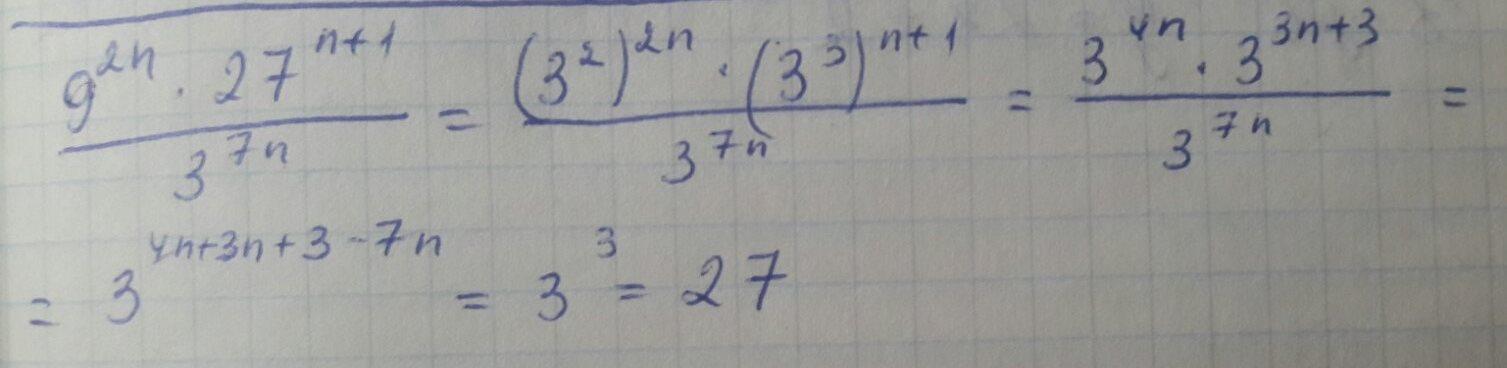 9^{2n} · 27^{n+1} / 3^{7n} = (3^2)^{2n} · (3^3)^{n+1} / 3^{7n} = 3^{4n} · 3^{3n+3} / 3^{7n} =
= 3^{4n+3n+3-7n} = 3^3 = 27